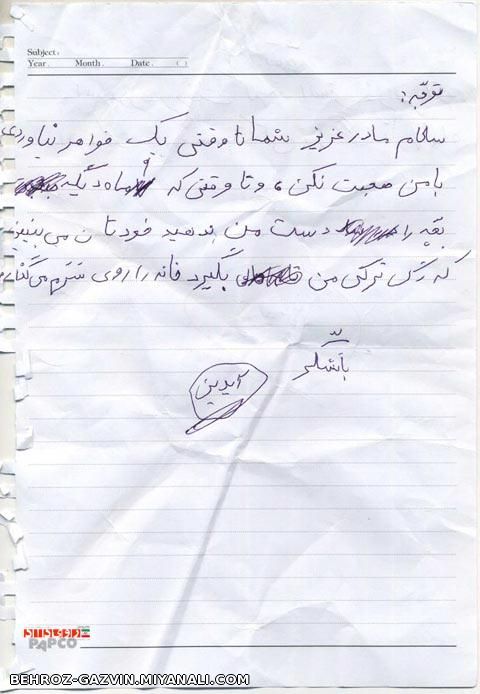 Subject:
Year. Month. Date. ( )
توجّه:
سلام مادر عزیز شما تا وقتی یک خواهر نیاوردی
با من صحبت نکن، و تا وقتی که ۶ ماه دیگه
بچه را دست من بدهید خودتان می بینین
که رگ ترکی من بگیرد خانه را روی سَرَم می گذارم
با تشکّر
آیدین
PAPCO
BEHROZ-GAZVIN.MIYANALI.COM